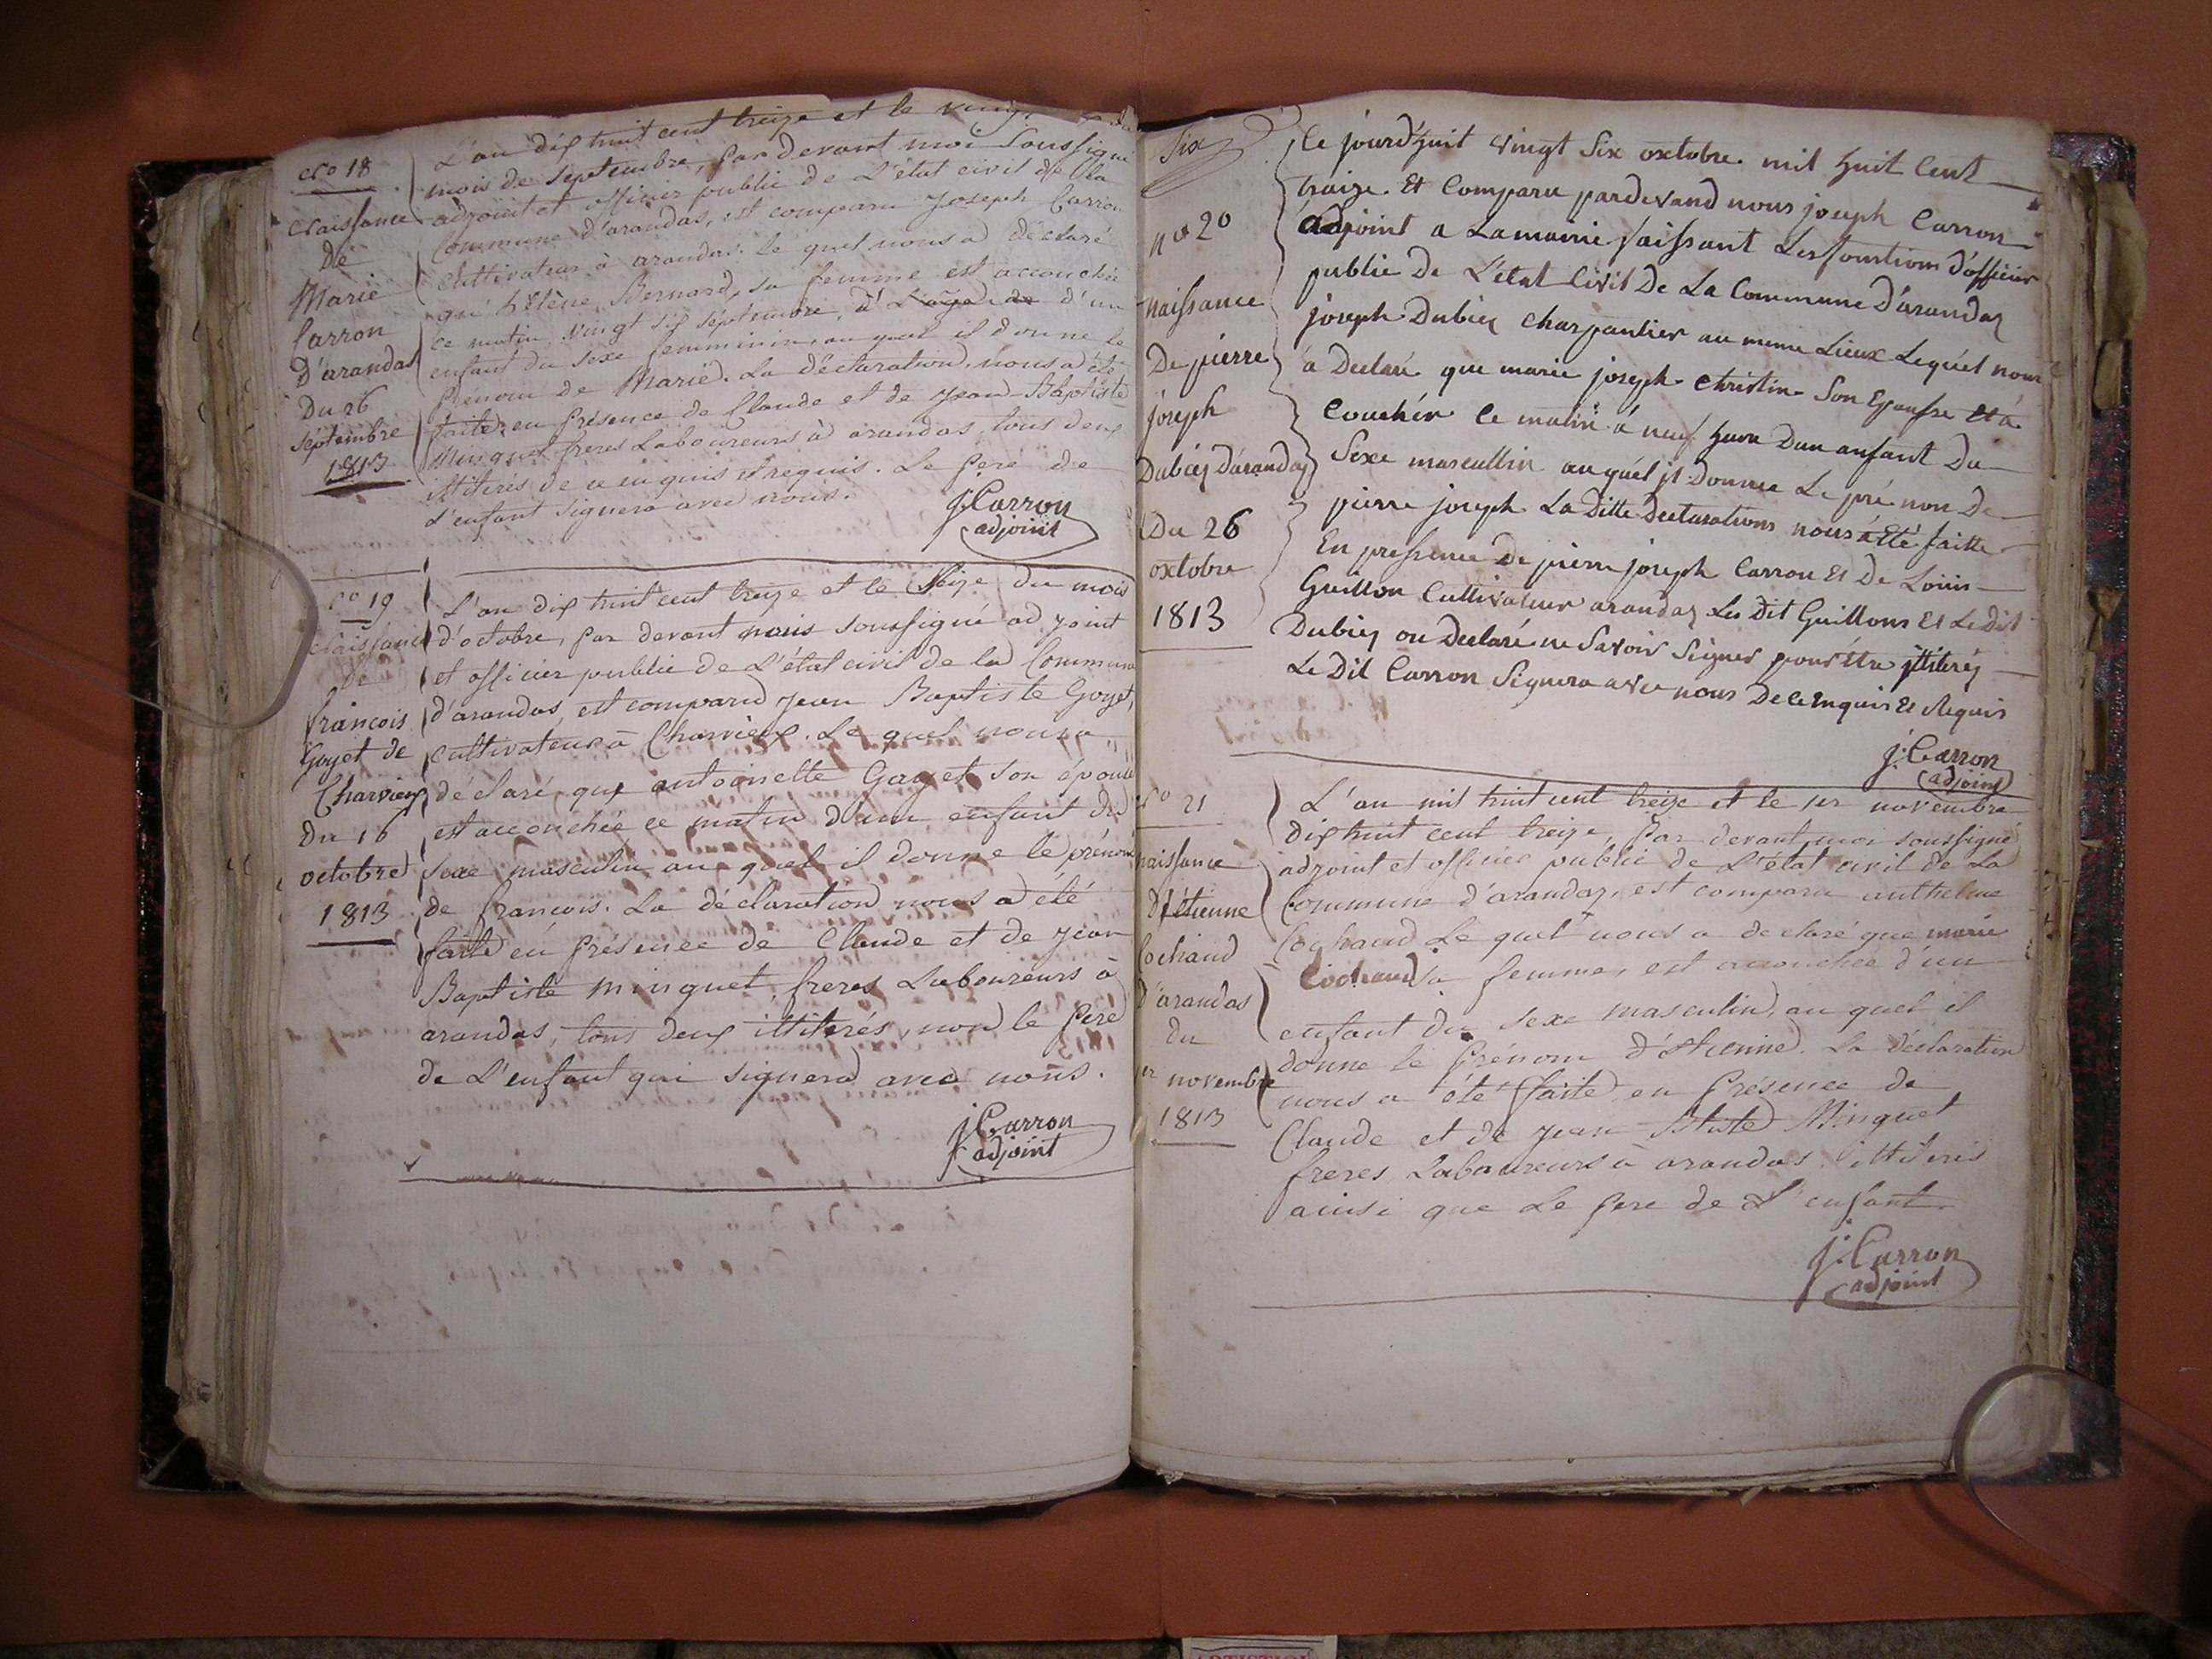 N.o 18
Naissance
De
Marie
Carron
D'arandas
Du 26
septembre
1813
L'an dix huit cent treize et le
mois de septembre, par devant moi soussigné
adjoint et officier public de L'état civil de la
Commune d'arandas, est comparu Joseph Carron
Cultivateur à arandas. Le quel nous a déclaré
qui hélène Bernard, sa femme est accouchée
ce matin, vingt six septembre, d'un
enfant du sexe femminin, au quel il donne le
Prénom de Marie. La déclaration nous a été
faite en présence de Claude et de Jean-Baptiste
Minguet freres Laboureurs à arandas tous deux
illiterés de ce enquis et requis. Le pere de
l'enfant signera avec nous.
J. Carron
adjoint
N.o 19
Naissance
de
francois
Goyet de
Charvieux
Du 16
octobre
1813
L'an dix huit cent treize et le seize du mois
d'octobre, par devant nous soussigné adjoint
et officier public de L'état civil de la Commune
d'arandas, est comparu Jean Baptiste Goyet,
cultivateur à Charvieux. Le quel nous a
déclaré que antoinette Goyet son épouse
est accouchée ce matin d'un enfant du
sexe masculin au quel il donne le prénom
de francois. La déclaration nous a été
faite en présence de Claude et de Jean
Baptiste Minguet, freres Laboureurs à
arandas, tous deux illiterés, non le père
de L'enfant qui signera avec nous.
J. Carron
adjoint
Six
n.o 20
naissance
De pierre
joseph
Dubiez D'arandaz
Du 26
oxtobre
1813
Ce jourd'huit vingt Six oxtobre mil huit Cent
traize Et Comparu pardevand nous joseph Carron
adjoint a Lamairie faissant Les fonstions d'officier
public De L'état Civil De La Commune D'arandaz
joseph Dubiez charpantier au meme Lieux Lequel nous
a Declaré que marie joseph christin Son Epousse Et a
Couchér ce matin a neuf hure Dun anfant Du
Sexe mascullin auquél jl Donnee Le pré nom De
pierre joseph La Ditte Declarations nous a Eté faitte
En pressence De pierre joseph Carron Et De Louis
Guillon Cultivateur arandaz Les Dit Guillons Et Le Dit
Dubiez on Declaré ne Savoir Signer pour Etre jlliteréz
Le Dit Carron Signera avec nous De ce Enquis Et Requis
J. Carron
adjoint
N.o 21
naissance
D'étienne
Cochaud
D'arandas
du
1er novembre
1813
L'an mil huit cent treize et le 1er novembre
dix huit cent treize, Par devant moi soussigné
adjoint et officier public de L'état civil de La
Commune d'arandaz, est comparu anthelme
Cochaud Le quel nous a declaré que marie
Cochaud sa femme, est accouchée d'un
enfant du sexe masculin, au quel il
donne le Prénom d'étienne. La déclaration
nous a été faite en présence de
Claude et de Jean Btiste Minguet
freres Laboureurs à arandas illiterés
ainsi que Le pere de L'enfant.
J. Carron
adjoint